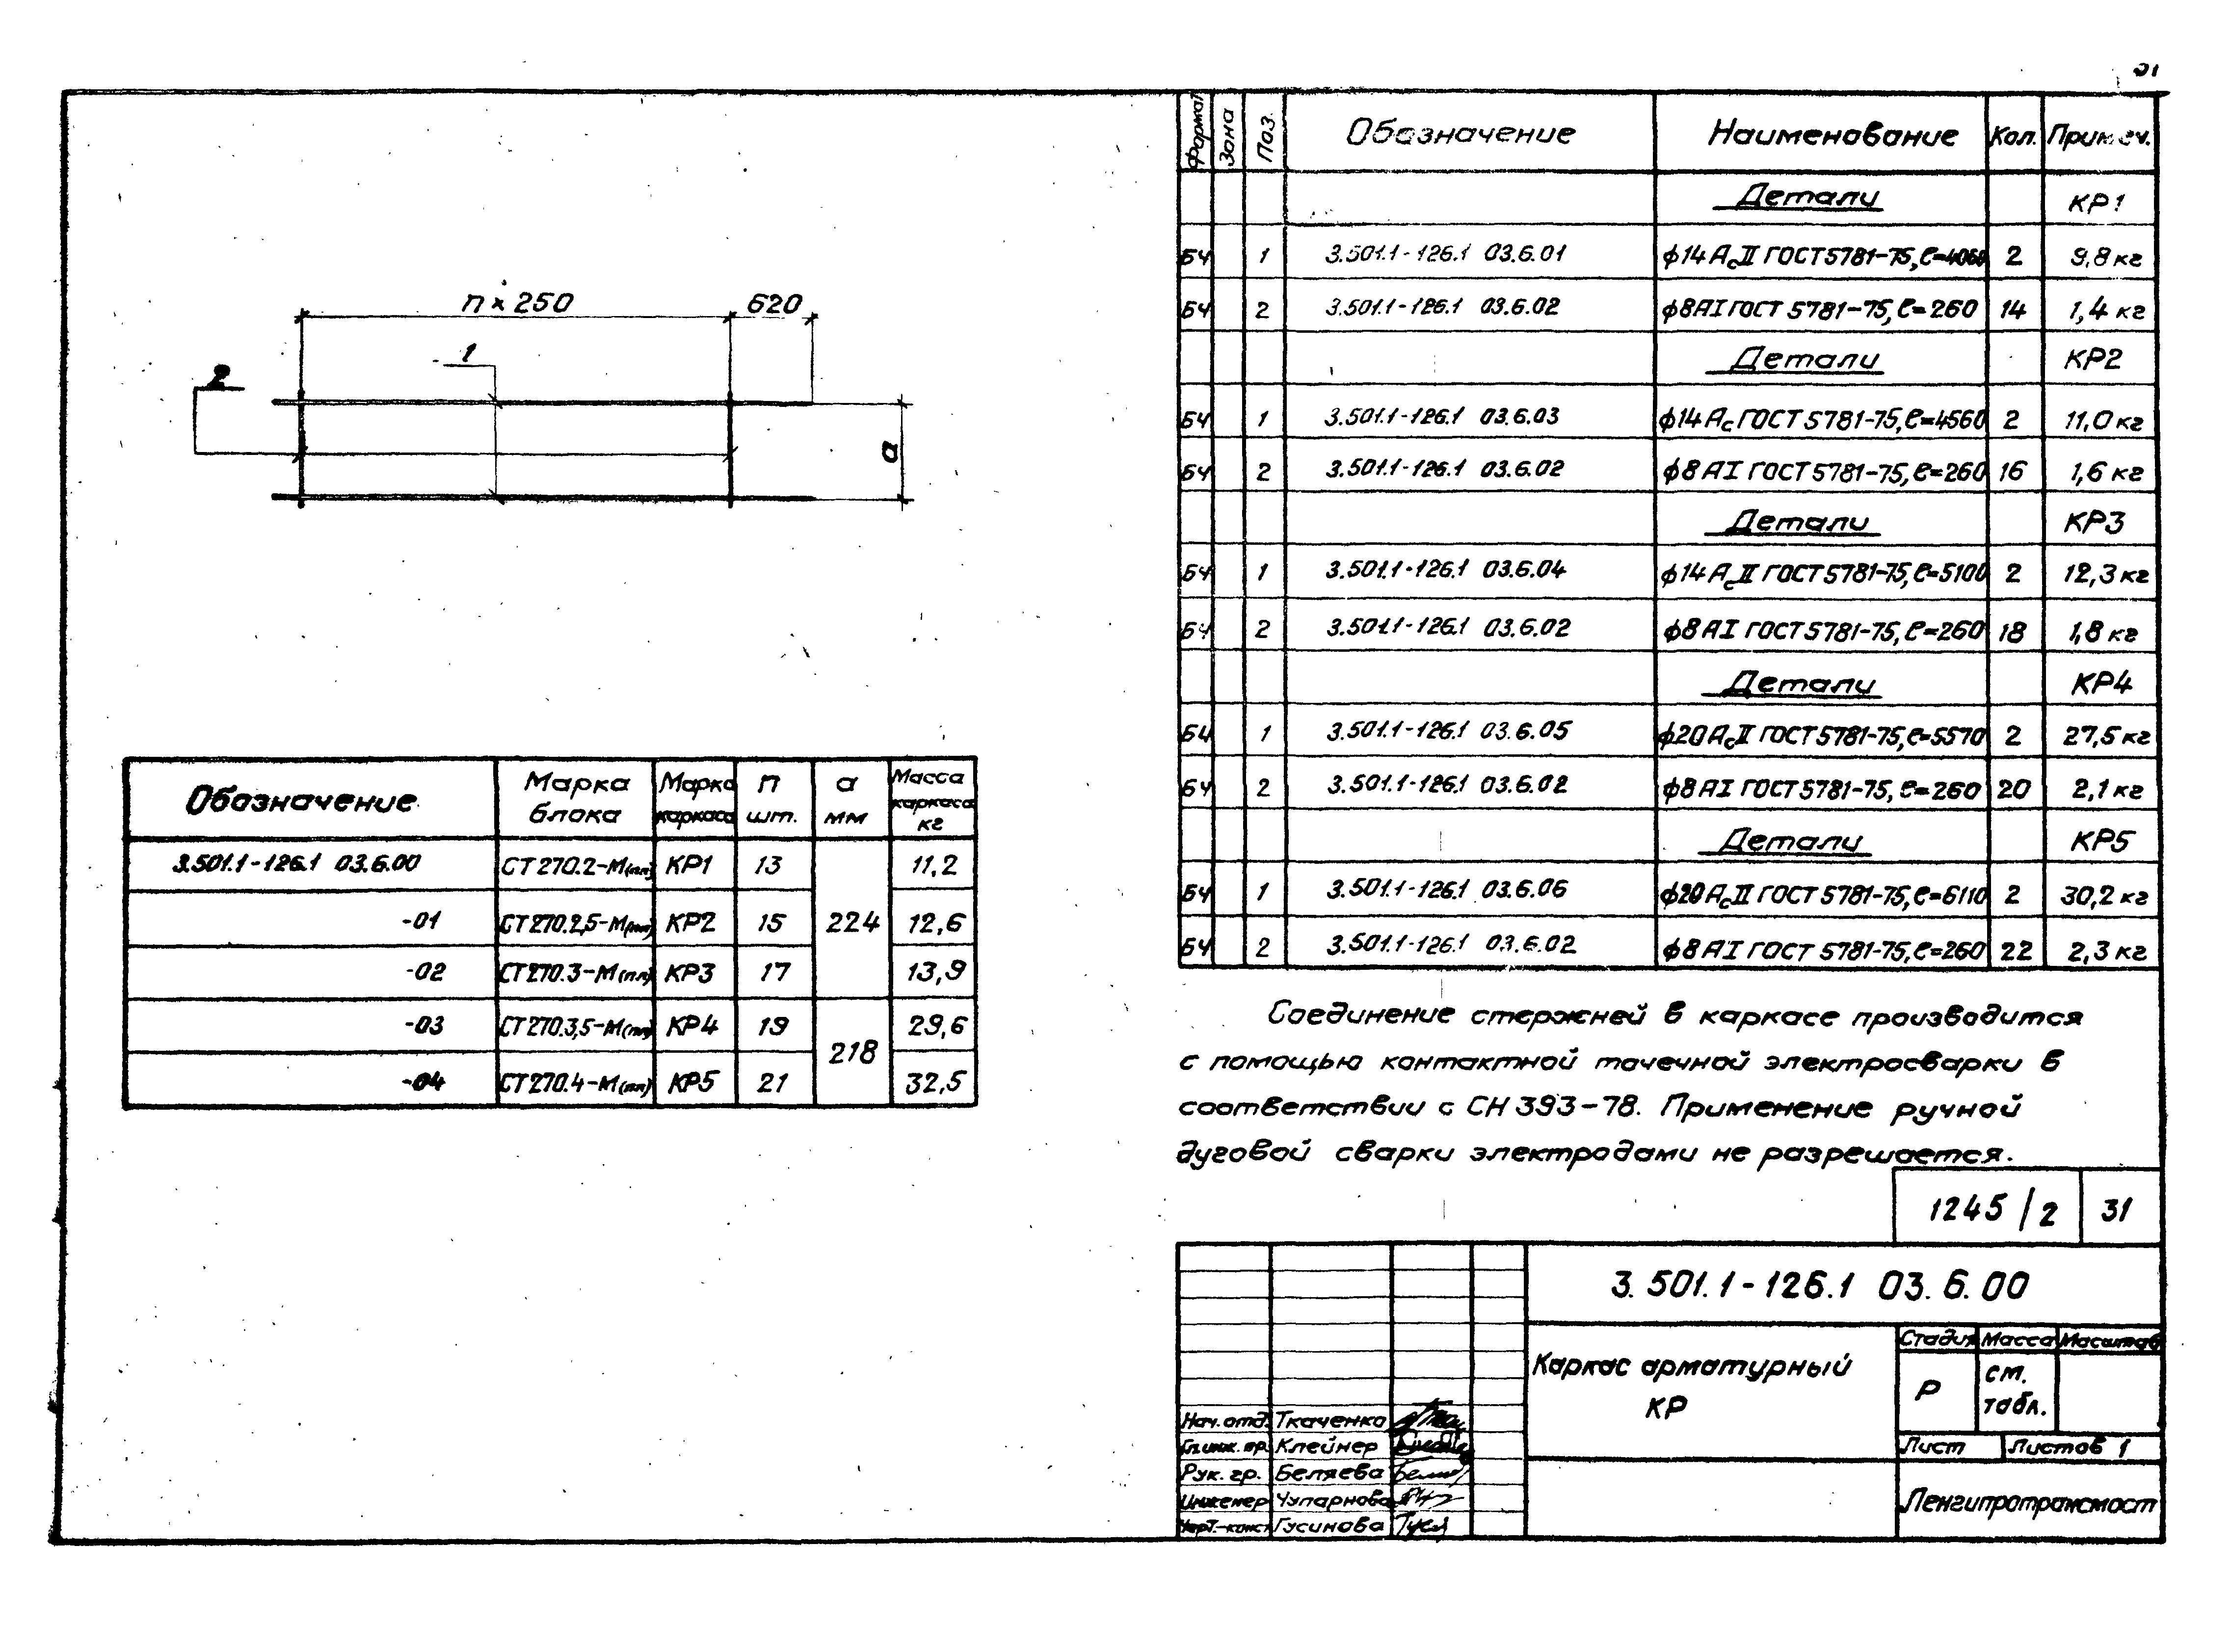 n×250 620
1
2
а
Обозначение Марка блока Марка каркаса n шт. а мм Масса каркаса кг
3.501.1-126.1 03.6.00 СТ270.2-М(пл) КР1 13 224 11,2
-01 СТ270.2,5-М(пл) КР2 15 12,6
-02 СТ270.3-М(пл) КР3 17 13,9
-03 СТ270.3,5-М(пл) КР4 19 218 29,6
-04 СТ270.4-М(пл) КР5 21 32,5
Формат Зона Поз. Обозначение Наименование Кол. Примеч.
Детали КР1
БЧ 1 3.501.1-126.1 03.6.01 ϕ14 АсII ГОСТ 5781-75, ℓ=4060 2 9,8 кг
БЧ 2 3.501.1-126.1 03.6.02 ϕ8 АI ГОСТ 5781-75, ℓ=260 14 1,4 кг
Детали КР2
БЧ 1 3.501.1-126.1 03.6.03 ϕ14 Ас ГОСТ 5781-75, ℓ=4560 2 11,0 кг
БЧ 2 3.501.1-126.1 03.6.02 ϕ8 АI ГОСТ 5781-75, ℓ=260 16 1,6 кг
Детали КР3
БЧ 1 3.501.1-126.1 03.6.04 ϕ14 АсII ГОСТ 5781-75, ℓ=5100 2 12,3 кг
БЧ 2 3.501.1-126.1 03.6.02 ϕ8 АI ГОСТ 5781-75, ℓ=260 18 1,8 кг
Детали КР4
БЧ 1 3.501.1-126.1 03.6.05 ϕ20 АсII ГОСТ 5781-75, ℓ=5570 2 27,5 кг
БЧ 2 3.501.1-126.1 03.6.02 ϕ8 АI ГОСТ 5781-75, ℓ=260 20 2,1 кг
Детали КР5
БЧ 1 3.501.1-126.1 03.6.06 ϕ20 АсII ГОСТ 5781-75, ℓ=6110 2 30,2 кг
БЧ 2 3.501.1-126.1 03.6.02 ϕ8 АI ГОСТ 5781-75, ℓ=260 22 2,3 кг
Соединение стержней в каркасе производится
с помощью контактной точечной электросварки в
соответствии с СН 393-78. Применение ручной
дуговой сварки электродами не разрешается.
1245/2 31
3.501.1-126.1 03.6.00
Каркас арматурный
КР
Стадия Масса Масштаб
Р см. табл.
Лист Листов 1
Ленгипротрансмост
Нач. отд. Ткаченко
Гл.инж. пр. Клейнер
Рук. гр. Беляева
Инженер Чупарнова
Черт.-конст. Гусинова